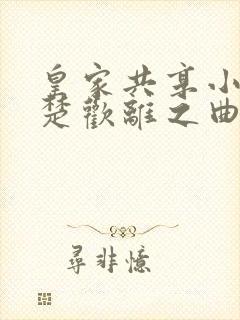 皇家共享小
楚歡離之曲
尋非憶